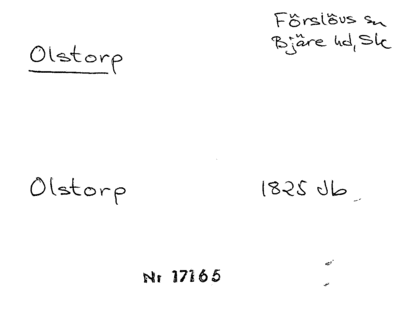 Förslövs sn
Bjäre hd, Sk
Olstorp
Olstorp 1825 Jb
Nr 17165